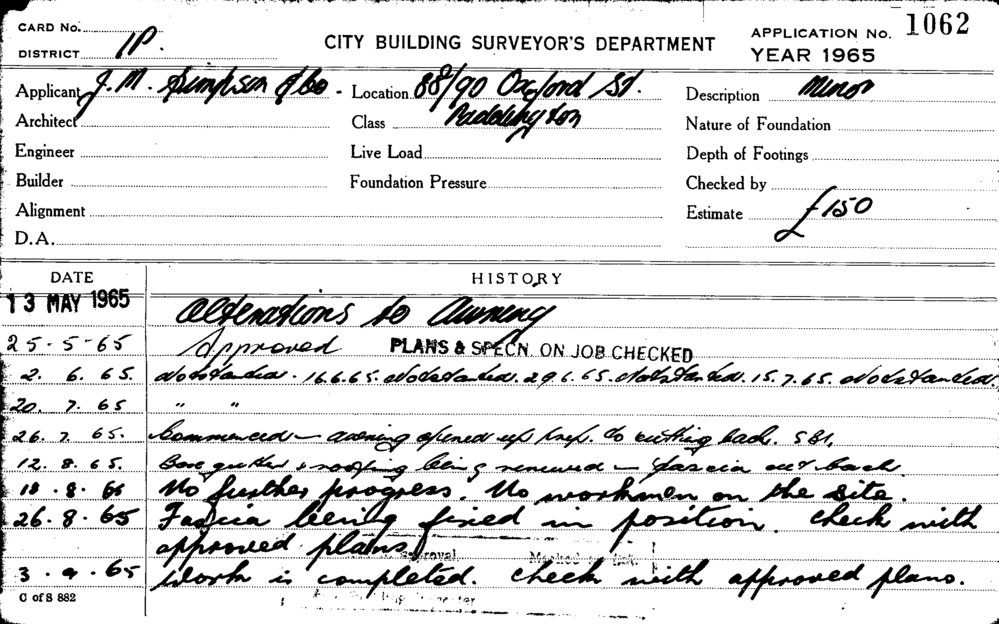 CARD No.
DISTRICT 1P.
CITY BUILDING SURVEYOR'S DEPARTMENT
APPLICATION No. 1062
YEAR 1965
Applicant J. M. Simpson & Co.
Location 88/90 Oxford St.
Description Minor
Architect
Class Paddington
Nature of Foundation
Engineer
Live Load
Depth of Footings
Builder
Foundation Pressure
Checked by
Alignment
Estimate £150
D.A.
DATE
HISTORY
13 MAY 1965 Alterations to Awning
25-5-65 Approved PLANS & SPECN. ON JOB CHECKED
2. 6. 65. Not started. 16.6.65. Not started. 29.6.65. Not started. 15.7.65. Not started.
20. 7. 65 " "
26. 7. 65. Commenced - awning opened up prep. to cutting back.
12. 8. 65. gutter & roofing being renewed - fascia cut back
18. 8. 65 No further progress. No workmen on the site.
26. 8. 65 Fascia being fixed in position. Check with
approved plans.
3. 9. 65 Work is completed. Check with approved plans.
C of S 882